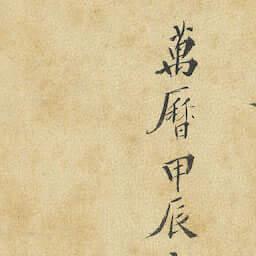 萬曆甲辰